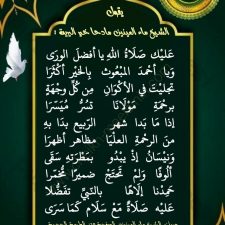 يقول
الشيخ ماء العينين مادحا خير البرية :
عَلَيْكَ صَلَاةُ اللهِ يا أفضلَ الورَى
وَيَا أحْمَدَ المَبْعُوثِ بِالخَيْرِ أكْثَرَا
تَجَلَّيْتَ فِي الأَكْوَانِ مِن كُلِّ وِجْهَةٍ
بِرَحْمَةِ مَوْلَانَا تَسُرُّ مُيَسَّرَا
إذا مَا بَدا شهر الرَّبيع بَدا بهِ
مِنَ الرحْمَةِ العلْيَا مظاهر أظهرَا
وَنِيسَانُ إذْ يبْدُو بمَطْرَتِهِ سَقَى
ألُوفًا وَلَمْ تَحْتَجْ ضميرًا مُخمَرا
حَمِدْنا إلَاهًا بِالنَّبِيِّ تَفَضَّلَا
عَلَيْهِ صَلاةٌ مَعْ سَلَامٍ كَمَا سَرَى